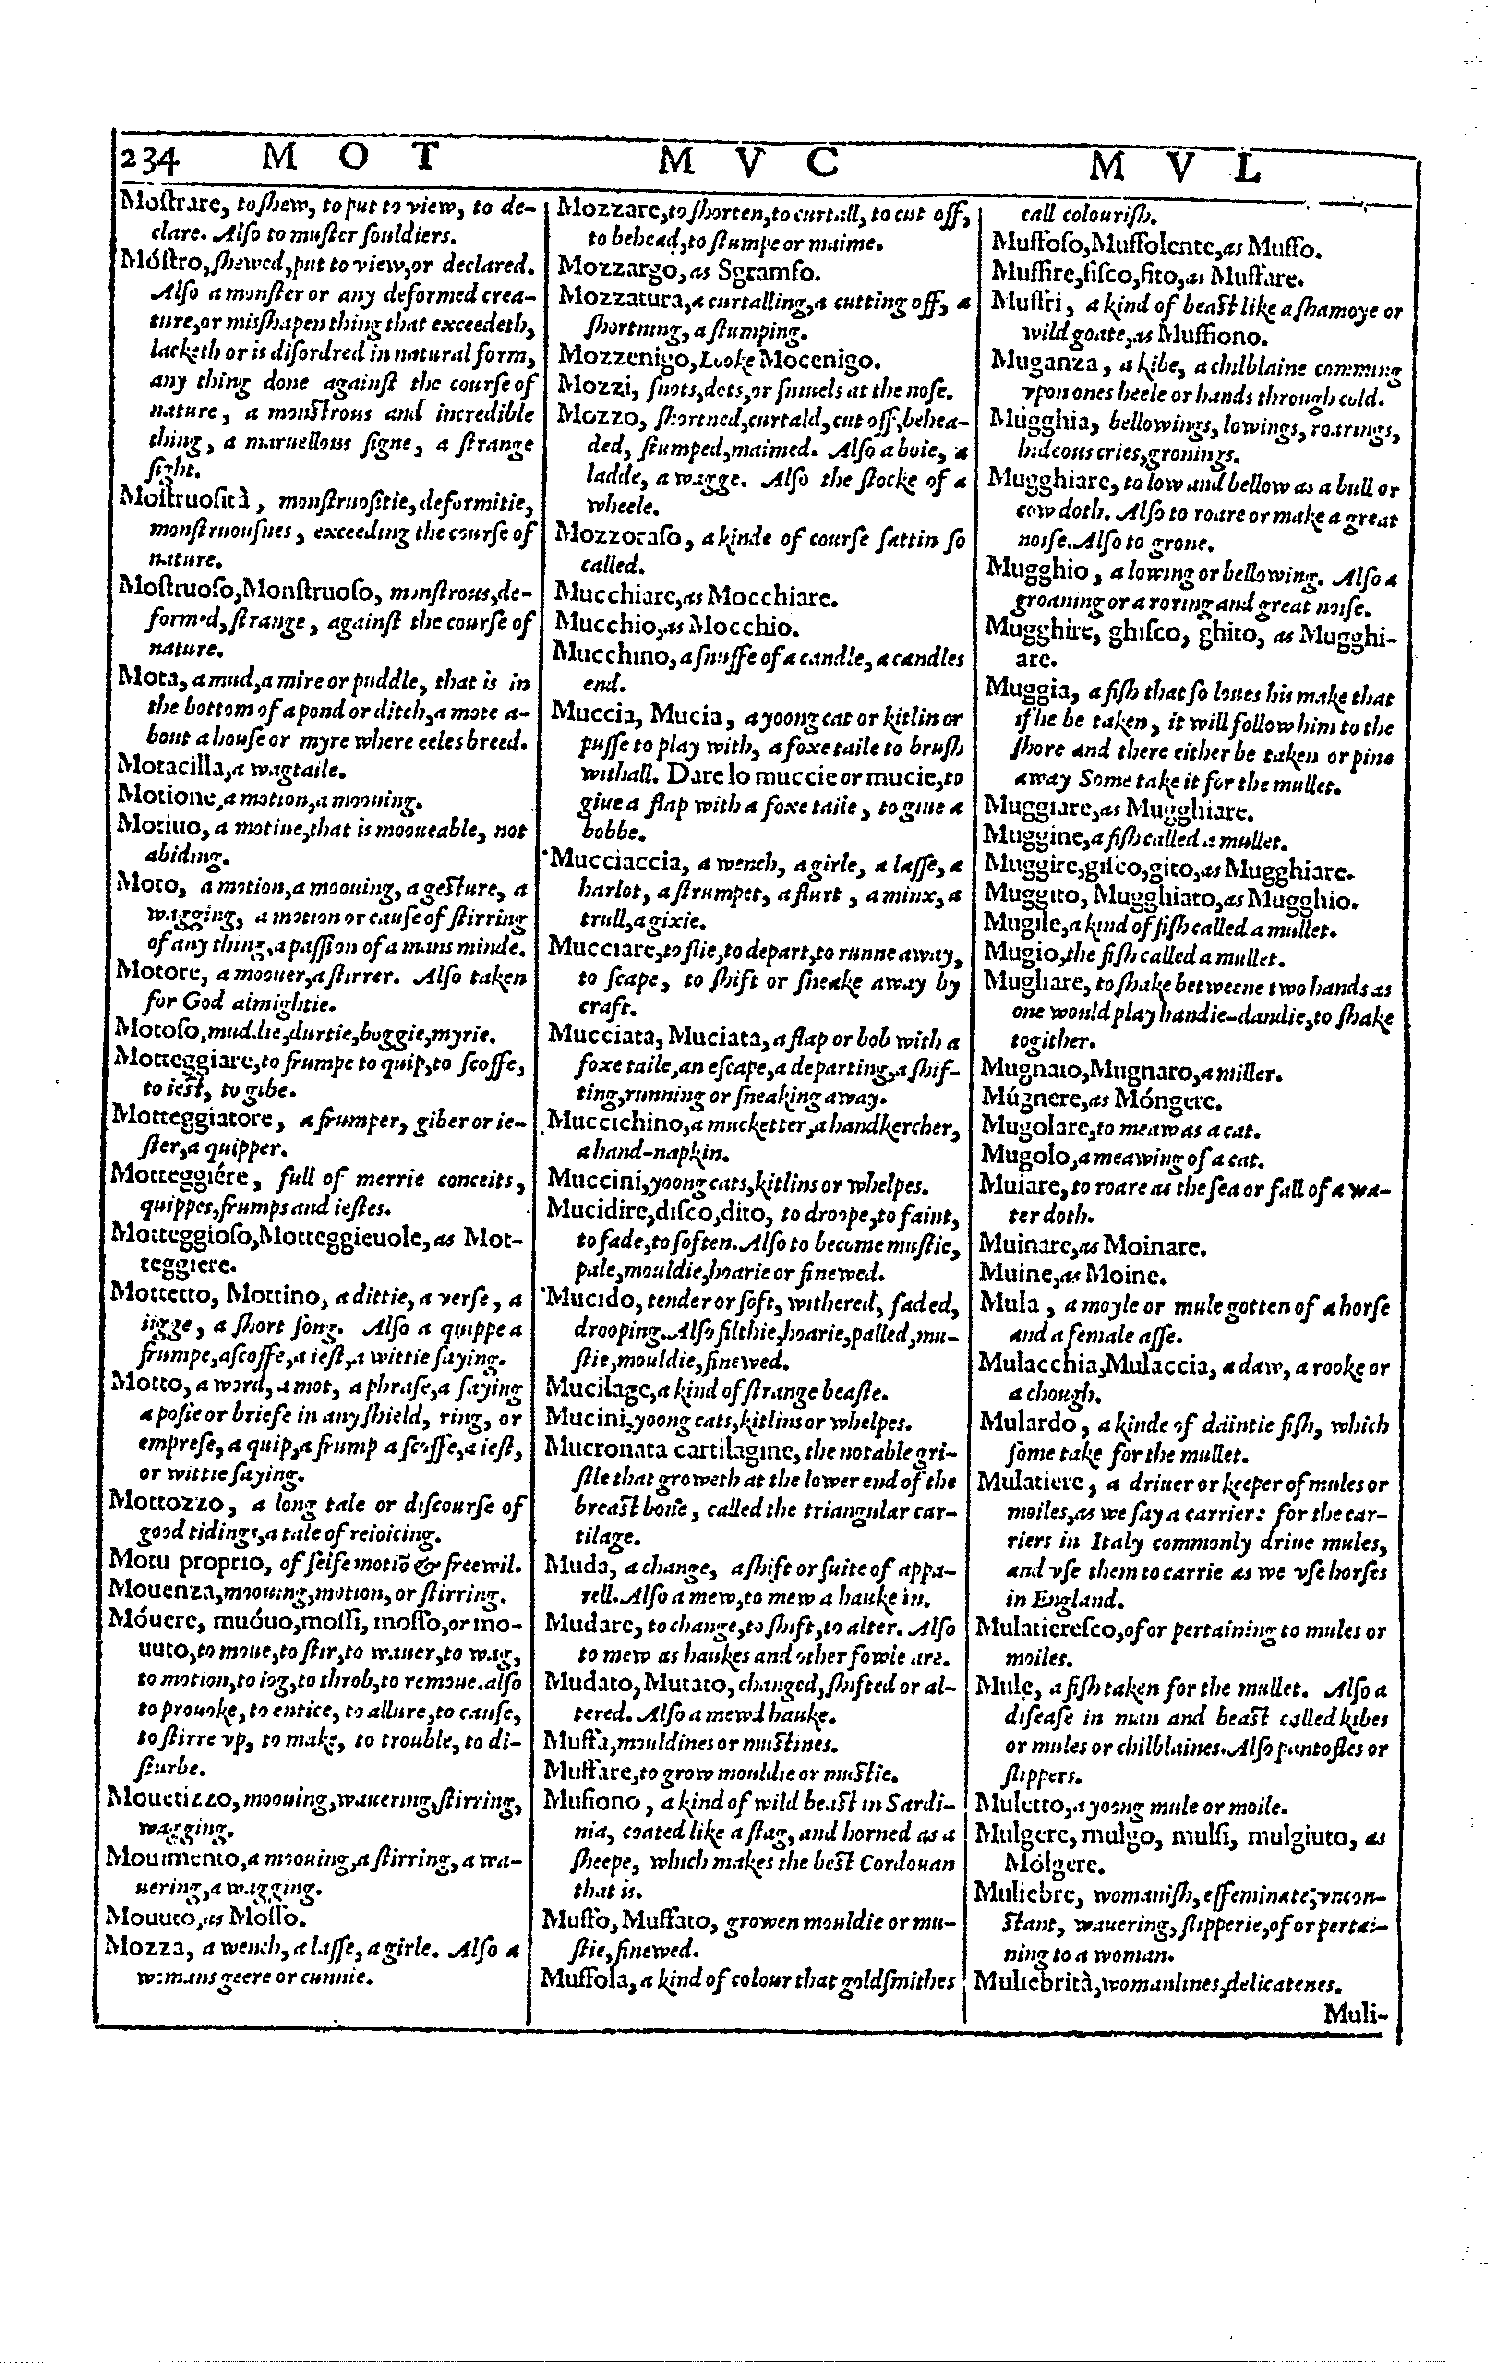 234 M O T M V C M V L
Moſtrare, to ſhew, to put to view, to de-
clare. Alſo to muſter ſouldiers.
Móſtro, ſhewed, put to view, or declared.
Alſo a monſter or any deformed crea-
ture, or miſshapen thing that exceedeth,
lacketh or is diſordred in natural form,
any thing done againſt the courſe of
nature, a monſtrous and incredible
thing, a maruellous ſigne, a ſtrange
ſight.
Moſtruoſità, monſtruoſitie, deformitie,
monſtruouſnes, exceeding the courſe of
nature.
Moſtruoſo, Monſtruoſo, monſtrous, de-
formed, ſtrange, againſt the courſe of
nature.
Mota, a mud, a mire or puddle, that is in
the bottom of a pond or ditch, a mote a-
bout a houſe or myre where eeles breed.
Motacilla, a wagtaile.
Motione, a motion, a moouing.
Motiuo, a motiue, that is mooueable, not
abiding.
Moto, a motion, a moouing, a geſture, a
wagging, a motion or cauſe of ſtirring
of any thing, a paſſion of a mans minde.
Motore, a moouer, a ſtirrer. Alſo taken
for God almightie.
Motoſo, muddie, durtie, boggie, myrie.
Motteggiare, to frumpe to quip, to ſcoffe,
to ieſt, to gibe.
Motteggiatore, a frumper, giber or ie-
ſter, a quipper.
Motteggiére, full of merrie conceits,
quippes, frumps and ieſtes.
Motteggioſo, Motteggieuole, as Mot-
teggiere.
Mottetto, Mottino, a dittie, a verſe, a
iigge, a ſhort ſong. Alſo a quippe a
frumpe, a ſcoffe, a ieſt, a wittie ſaying.
Motto, a word, a mot, a phraſe, a ſaying
a poſie or briefe in any ſhield, ring, or
empreſe, a quip, a frump a ſcoffe, a ieſt,
or wittie ſaying.
Mottozzo, a long tale or diſcourſe of
good tidings, a tale of reioicing.
Motu proprio, of ſelfe motiõ & freewil.
Mouenza, moouing, motion, or ſtirring.
Móuere, muóuo, moſſi, moſſo, or mo-
uuto, to moue, to ſtir, to wauer, to wag,
to motion, to iog, to throb, to remoue. alſo
to prouoke, to entice, to allure, to cauſe,
to ſtirre vp, to make, to trouble, to di-
ſturbe.
Mouetizzo, moouing, wauering, ſtirring,
wagging.
Mouimento, a moouing, a ſtirring, a wa-
uering, a wagging.
Mouuto, as Moſſo.
Mozza, a wench, a laſſe, a girle. Alſo a
womans geere or cunnie.
Mozzare, to ſhorten, to curtall, to cut off,
to behead, to ſtumpe or maime.
Mozzargo, as Sgramſo.
Mozzatura, a curtalling, a cutting off, a
ſhortning, a ſtumping.
Mozzenigo, Looke Mocenigo.
Mozzi, ſnots, dets, or ſnuuels at the noſe.
Mozzo, ſhortened, curtald, cut off, behea-
ded, ſtumped, maimed. Alſo a boie, a
ladde, a wagge. Alſo the ſtocke of a
wheele.
Mozzoraſo, a kinde of courſe ſattin ſo
called.
Mucchiare, as Mocchiare.
Mucchio, as Mocchio.
Mucchino, a ſnuffe of a candle, a candles
end.
Muccia, Mucia, a yoong cat or kitlin or
puſſe to play with, a foxe taile to bruſh
withall. Dare lo muccie or mucie, to
giue a flap with a foxe taile, to giue a
bobbe.
Mucciaccia, a wench, a girle, a laſſe, a
harlot, a ſtrumpet, a flurt, a minx, a
trull, a gixie.
Mucciare, to flie, to depart, to runne away,
to ſcape, to ſhift or ſneake away by
craft.
Mucciata, Muciata, a flap or bob with a
foxe taile, an eſcape, a departing, a ſhif-
ting, running or ſneaking away.
Muccichino, a mucketter, a handkercher,
a hand-napkin.
Muccini, yoong cats, kitlins or whelpes.
Mucidire, diſco, dito, to droope, to faint,
to fade, to ſoften. Alſo to become muſtie,
pale, mouldie, hoarie or finewed.
Mucido, tender or ſoft, withered, faded,
drooping. Alſo filthie, hoarie, palled, mu-
ſtie, mouldie, finewed.
Mucilage, a kind of ſtrange beaſte.
Mucini, yoong cats, kitlins or whelpes.
Mucronata cartilagine, the notable gri-
ſtle that groweth at the lower end of the
breaſt bone, called the triangular car-
tilage.
Muda, a change, a ſhift or ſuite of appa-
rell. Alſo a mew, to mew a hauke in.
Mudare, to change, to ſhift, to alter. Alſo
to mew as haukes and other fowle are.
Mudato, Mutato, changed, ſhifted or al-
tered. Alſo a mewd hauke.
Muffa, mouldines or muſtines.
Muffare, to grow mouldie or muſtie.
Mufiono, a kind of wild beaſt in Sardi-
nia, coated like a ſtag, and horned as a
ſheepe, which makes the beſt Cordouan
that is.
Muffo, Muffato, growen mouldie or mu-
ſtie, finewed.
Muffola, a kind of colour that goldſmithes
call colouriſh.
Muffoſo, Muffolente, as Muffo.
Muffire, fiſco, fito, as Muffare.
Muffri, a kind of beaſt like a ſhamoye or
wild goate, as Muffiono.
Muganza, a kibe, a chilblaine comming
vpon ones heele or hands through cold.
Mùgghia, bellowings, lowings, roarings,
hideous cries, gronings.
Mugghiare, to low and bellow as a bull or
cow doth. Alſo to roare or make a great
noiſe. Alſo to grone.
Mugghio, a lowing or bellowing. Alſo a
groaning or a roring and great noiſe.
Mugghire, ghiſco, ghito, as Mugghi-
are.
Muggia, a fiſh that ſo loues his make that
if he be taken, it will follow him to the
ſhore and there either be taken or pine
away Some take it for the mullet.
Muggiare, as Mugghiare.
Muggine, a fiſh called a mullet.
Muggire, giſco, gito, as Mugghiare.
Muggito, Mugghiato, as Mugghio.
Mugile, a kind of fiſh called a mullet.
Mugio, the fiſh called a mullet.
Mugliare, to ſhake betweene two hands as
one would play handie-dandie, to ſhake
togither.
Mugnaio, Mugnaro, a miller.
Múgnere, as Móngere.
Mugolare, to meaw as a cat.
Mugolo, a meawing of a cat.
Muiare, to roare as the ſea or fall of a wa-
ter doth.
Muinare, as Moinare.
Muine, as Moine.
Mula, a moyle or mule gotten of a horſe
and a female aſſe.
Mulacchia, Mulaccia, a daw, a rooke or
a chough.
Mulardo, a kinde of daintie fiſh, which
ſome take for the mullet.
Mulatiere, a driuer or keeper of mules or
moiles, as we ſay a carrier: for the car-
riers in Italy commonly driue mules,
and vſe them to carrie as we vſe horſes
in England.
Mulatiereſco, of or pertaining to mules or
moiles.
Mule, a fiſh taken for the mullet. Alſo a
diſeaſe in man and beaſt called kibes
or mules or chilblaines. Alſo pantofles or
ſlippers.
Muletto, a yoong mule or moile.
Mulgere, mulgo, mulſi, mulgiuto, as
Mólgere.
Muliebre, womaniſh, effeminate, vncon-
ſtant, wauering, ſlipperie, of or pertai-
ning to a woman.
Muliebrità, womanlines, delicatenes.
Muli-